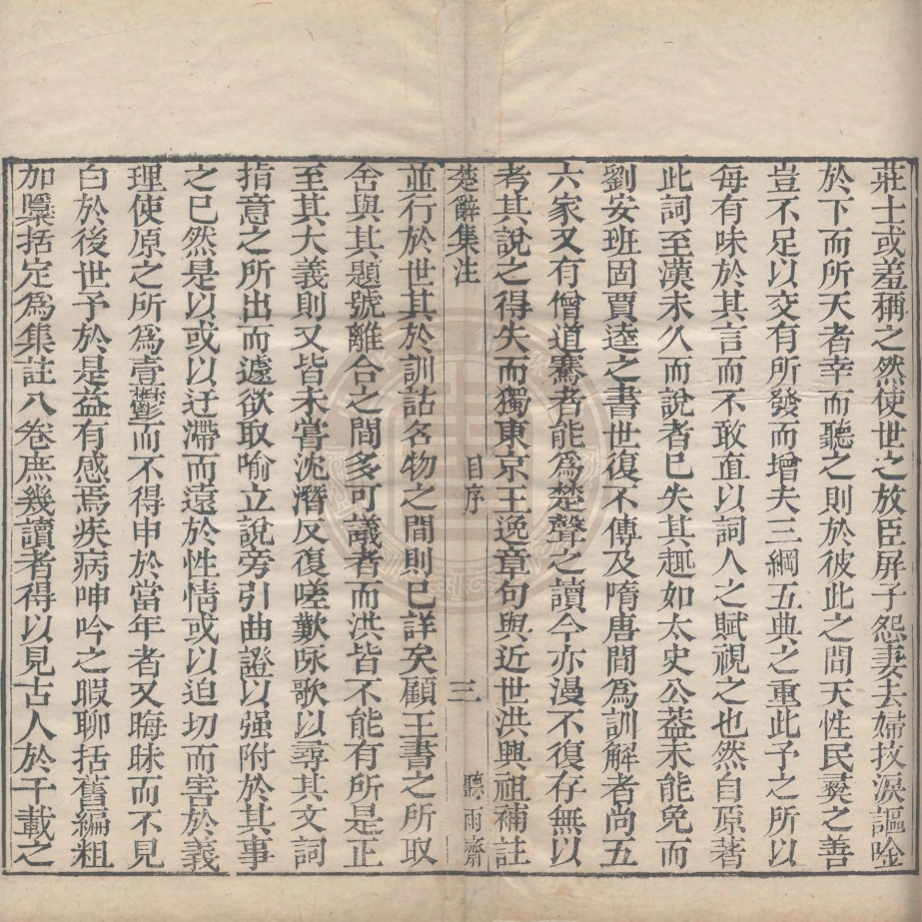 莊士或羞稱之然使世之放臣屏子怨妻去婦抆淚謳唫
於下而所天者幸而聽之則於彼此之間天性民彝之善
豈不足以交有所發而增夫三綱五典之重此予之所以
每有味於其言而不敢直以詞人之賦視之也然自原著
此詞至漢未久而說者已失其趣如太史公葢未能免而
劉安班固賈逵之書世復不傳及隋唐間爲訓解者尚五
六家又有僧道騫者能爲楚聲之讀今亦漫不復存無以
考其說之得失而獨東京王逸章句與近世洪興祖補註
楚辭集注 目序 三 聽雨齋
並行於世其於訓詁名物之間則已詳矣顧王書之所取
舍與其題號離合之間多可議者而洪皆不能有所是正
至其大義則又皆未嘗沈潛反復嗟歎咏歌以尋其文詞
指意之所出而遽欲取喻立說旁引曲證以强附於其事
之已然是以或以迂滯而遠於性情或以迫切而害於義
理使原之所爲壹鬱而不得申於當年者又晦昧而不見
白於後世予於是益有感焉疾病呻吟之暇聊括舊編粗
加櫽括定爲集註八卷庶幾讀者得以見古人於千載之